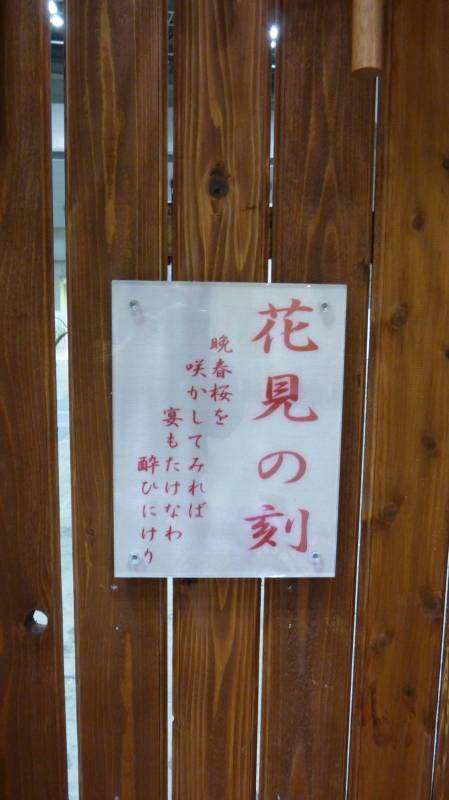 花見の刻
晩春桜を
咲かしてみれば
宴もたけなわ
酔ひにけり